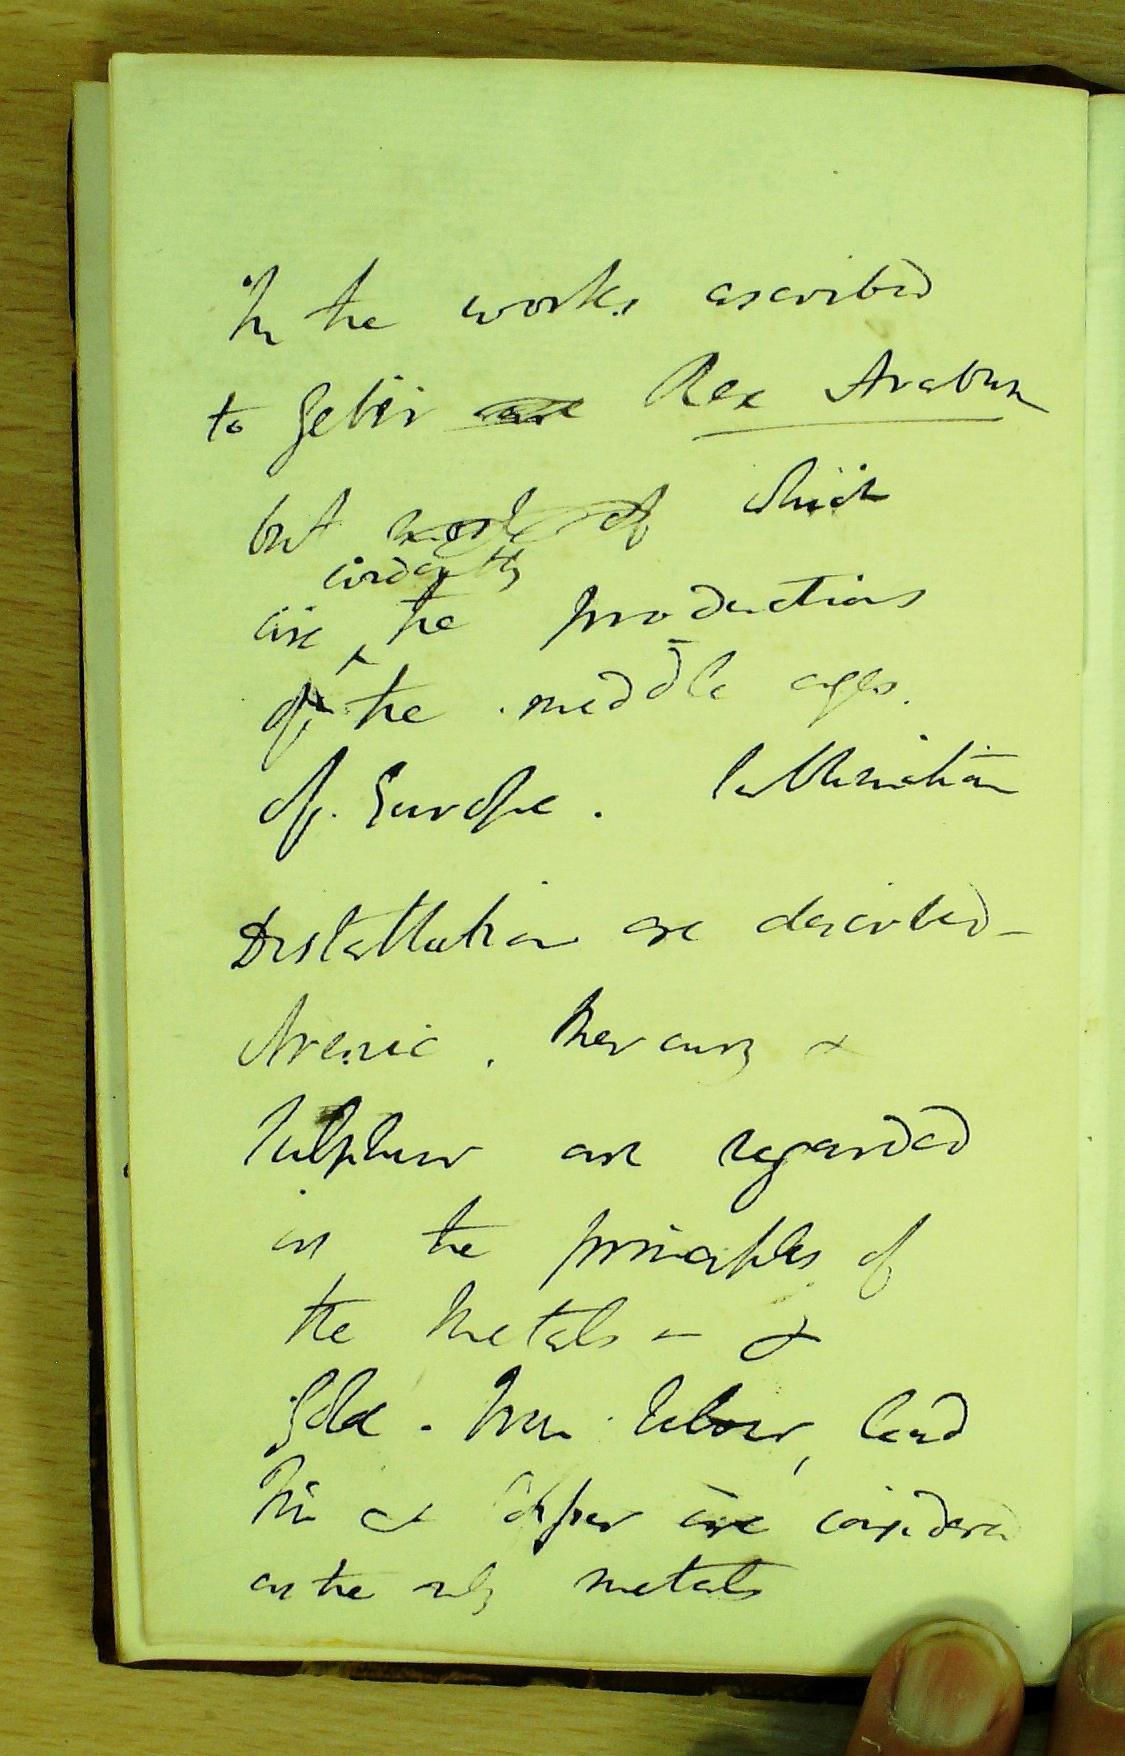 In the works ascribed
to Gebir are Rex Arabum
but most of which
evidently
are ^ the productions
of the middle ages.
of Europe. Sublimation
Distillation are described -
Arsenic. Mercury &
Sulphur are regarded
as the principles of
the Metals - &
Gold. Iron. Silver, lead
Tin & Copper are considered
as the only metals